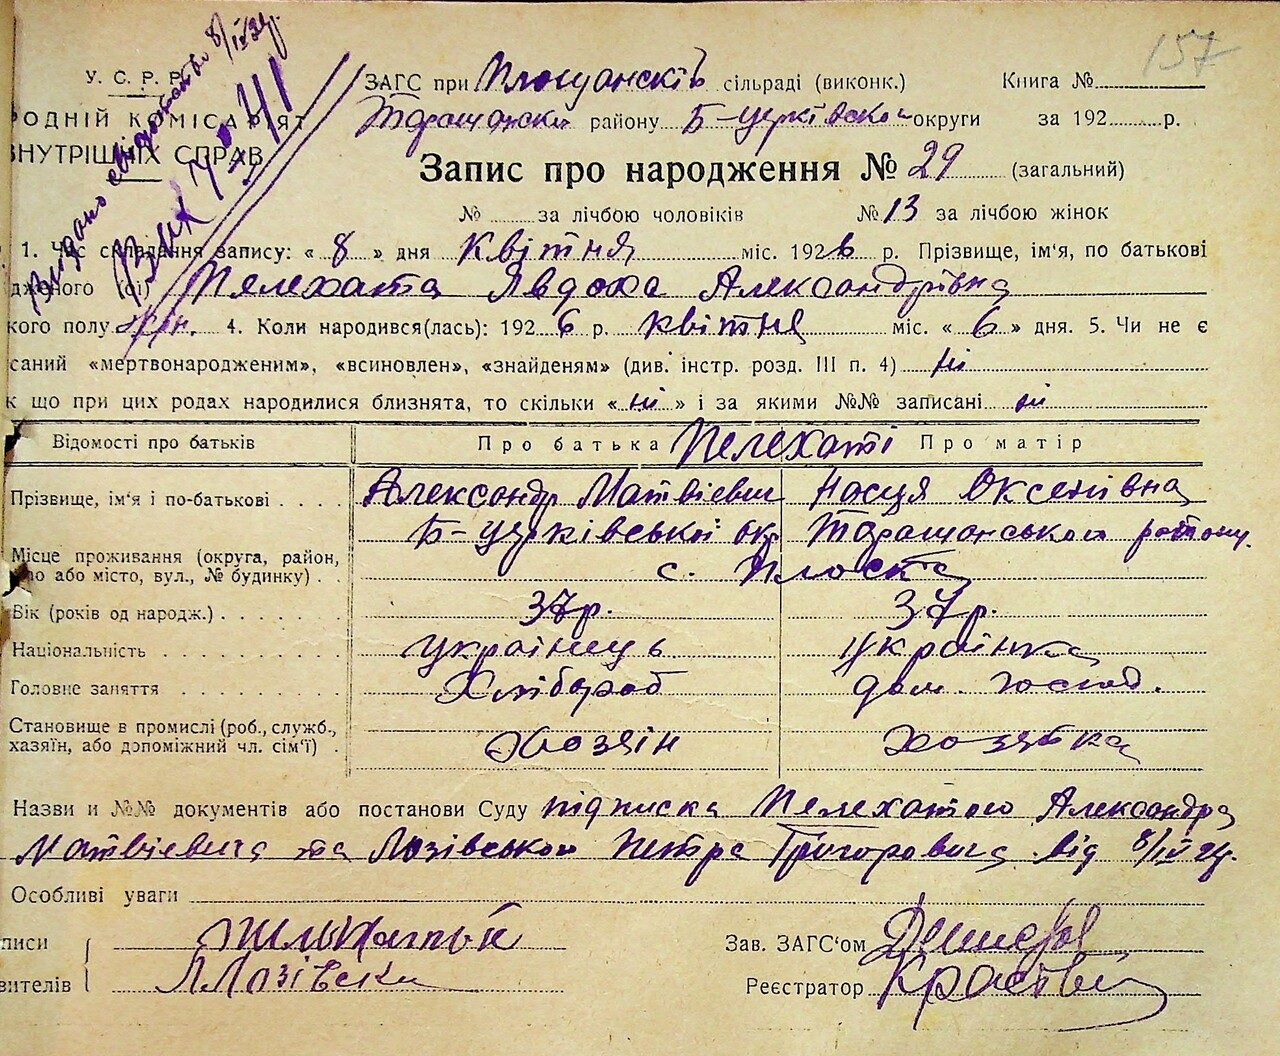 157
Видано свідоцтво 8/IV 24.
У. С. Р. Р.
РОДНІЙ КОМІСАРІЯТ
ВНУТРІШНІХ СПРАВ
ЗАГС при Площанскій сільраді (виконк.) Книга №
Таращански району Б-Церківской округи за 192 р.
Запис про народження № 29 (загальний)
№ за лічбою чоловіків № 13 за лічбою жінок
1. Час складання запису: « 8 » дня Квітня міс. 1926 р. Прізвище, ім'я, по батькові
дженого (ої) Пелехата Явдоха Александрівна
кого полу жін. 4. Коли народився(лась): 1926 р. квітня міс. « 6 » дня. 5. Чи не є
саний «мертвонародженим», «всиновлен», «знайденям» (див. інстр. розд. III п. 4) ні
к що при цих родах народилися близнята, то скільки « ні » і за якими №№ записані ні
Відомості про батьків Про батька Пелехаті Про матір
Прізвище, ім'я і по-батькові Александр Матвієвич Насця Оксентівна
Б-Церківської окр Таращанського району.
Місце проживання (округа, район,
або місто, вул., № будинку) с. Плоска
Вік (років од народж.) 37р. 37р.
Національність українець українка
Головне заняття Хлібороб дом. господ.
Становище в промислі (роб., служб.,
хазяїн, або допоміжний чл. сім'ї) Хозяін хозяйка
Назви и №№ документів або постанови Суду підписка Пелехатого Александра
Матвієвича та Лозівского Петра Григоровича від 8/IV 24.
Особливі уваги
писи Пилихатый Зав. ЗАГС'ом
вителів Лозівски Реєстратор